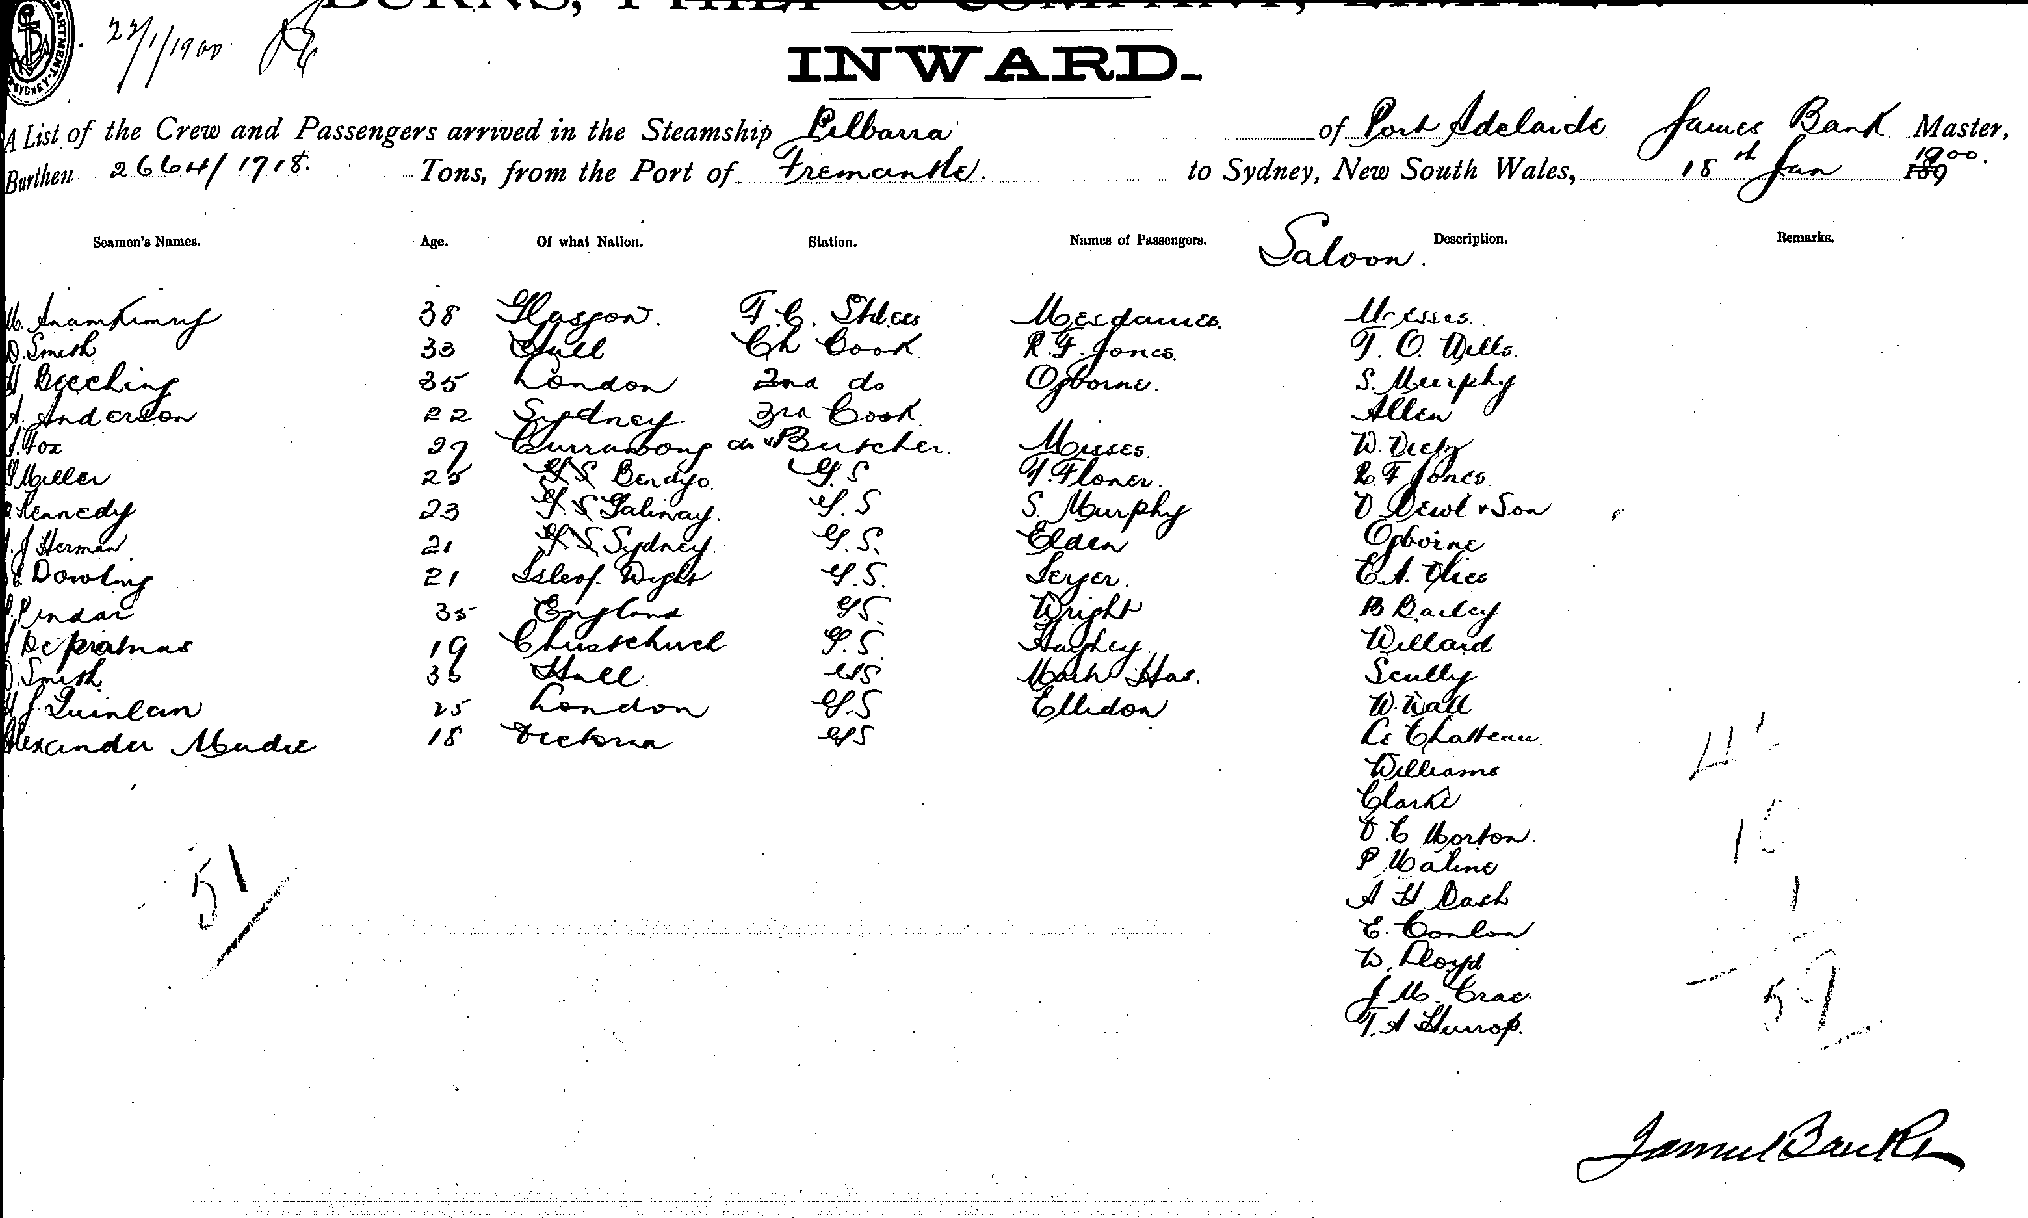 BURNS, PHILP & COMPANY, LIMITED.
22/1/1900
INWARD.
A List of the Crew and Passengers arrived in the Steamship Pilbarra of Port Adelaide James Bank Master,
Burthen 2664/1718. Tons, from the Port of Fremantle. to Sydney, New South Wales, 18th Jan 1900. 189
Seamen's Names. Age. Of what Nation. Station. Names of Passengers. Saloon. Description. Remarks.
38 Glasgow. F.C. Mesdames. Messrs.
D. Smith 33 Hull Ch Cook R. F. Jones. T. O. Wills.
Beeching 35 London 2nd do Ogborne. S. Murphy
A. Anderson 22 Sydney 3rd Cook Allen
J. Fox 29 Currawong do & Butcher. Misses. W.
Miller 25 G S Bendigo G.S F. Flower. R F Jones.
Kennedy 23 G S Galway. G.S S. Murphy D & Son
J Herman 21 G S Sydney G.S. Elden Ogborne
Dowling 21 Isle of Wight G.S. E. A.
Pindar 35 England GS. Wright B Bailey
19 Christchurch G.S Hughey Willard
D. Smith 35 Hull GS Scully
J. Quinlan 25 London G.S Ellidon W. Wall
Alexander Mudie 18 Victoria GS Le Chatteau
Williams
Clarke
D. C Morton.
P Maline
51
A H Dash
1
E. Conlon
W. Lloyd
59
J. M. Crae.
T. A Hurrop.
James Banks